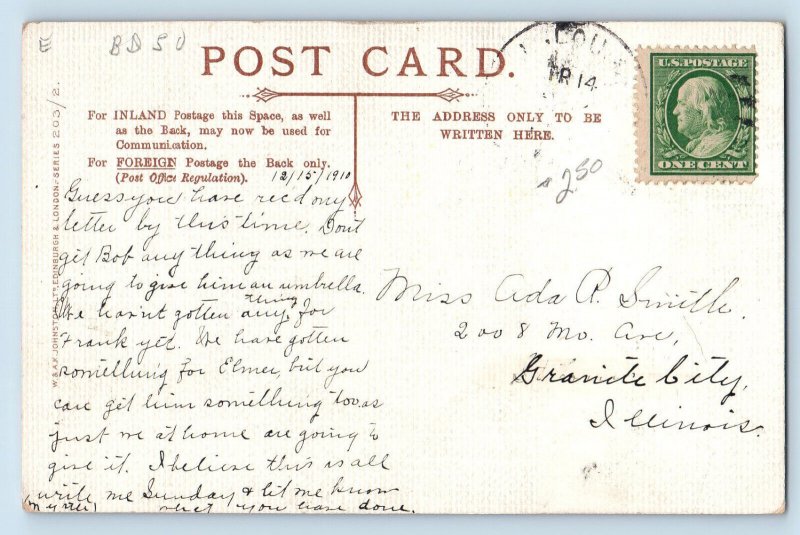 E
BD 50
POST CARD.
For INLAND Postage this Space, as well
as the Back, may now be used for
Communication.
For FOREIGN Postage the Back only.
(Post Office Regulation).
THE ADDRESS ONLY TO BE
WRITTEN HERE.
U.S. POSTAGE
ONE CENT
14
2.50
12/15/1910
Guess you have rec'd my
letter by this time. Dont
get Bob anything as we are
going to give him an umbrella.
We havn't gotten any thing for
Frank yet. We have gotten
something for Elmer, but you
can get him something too as
just we at home are going to
give it. I believe this is all
write me Sunday & let me know
what you have done.
Miss Ada R. Smith.
2008 Mo. Ave,
Granite City,
Illinois.
W. & A.K. JOHNSTON, LTD. EDINBURGH & LONDON. SERIES 203/2.